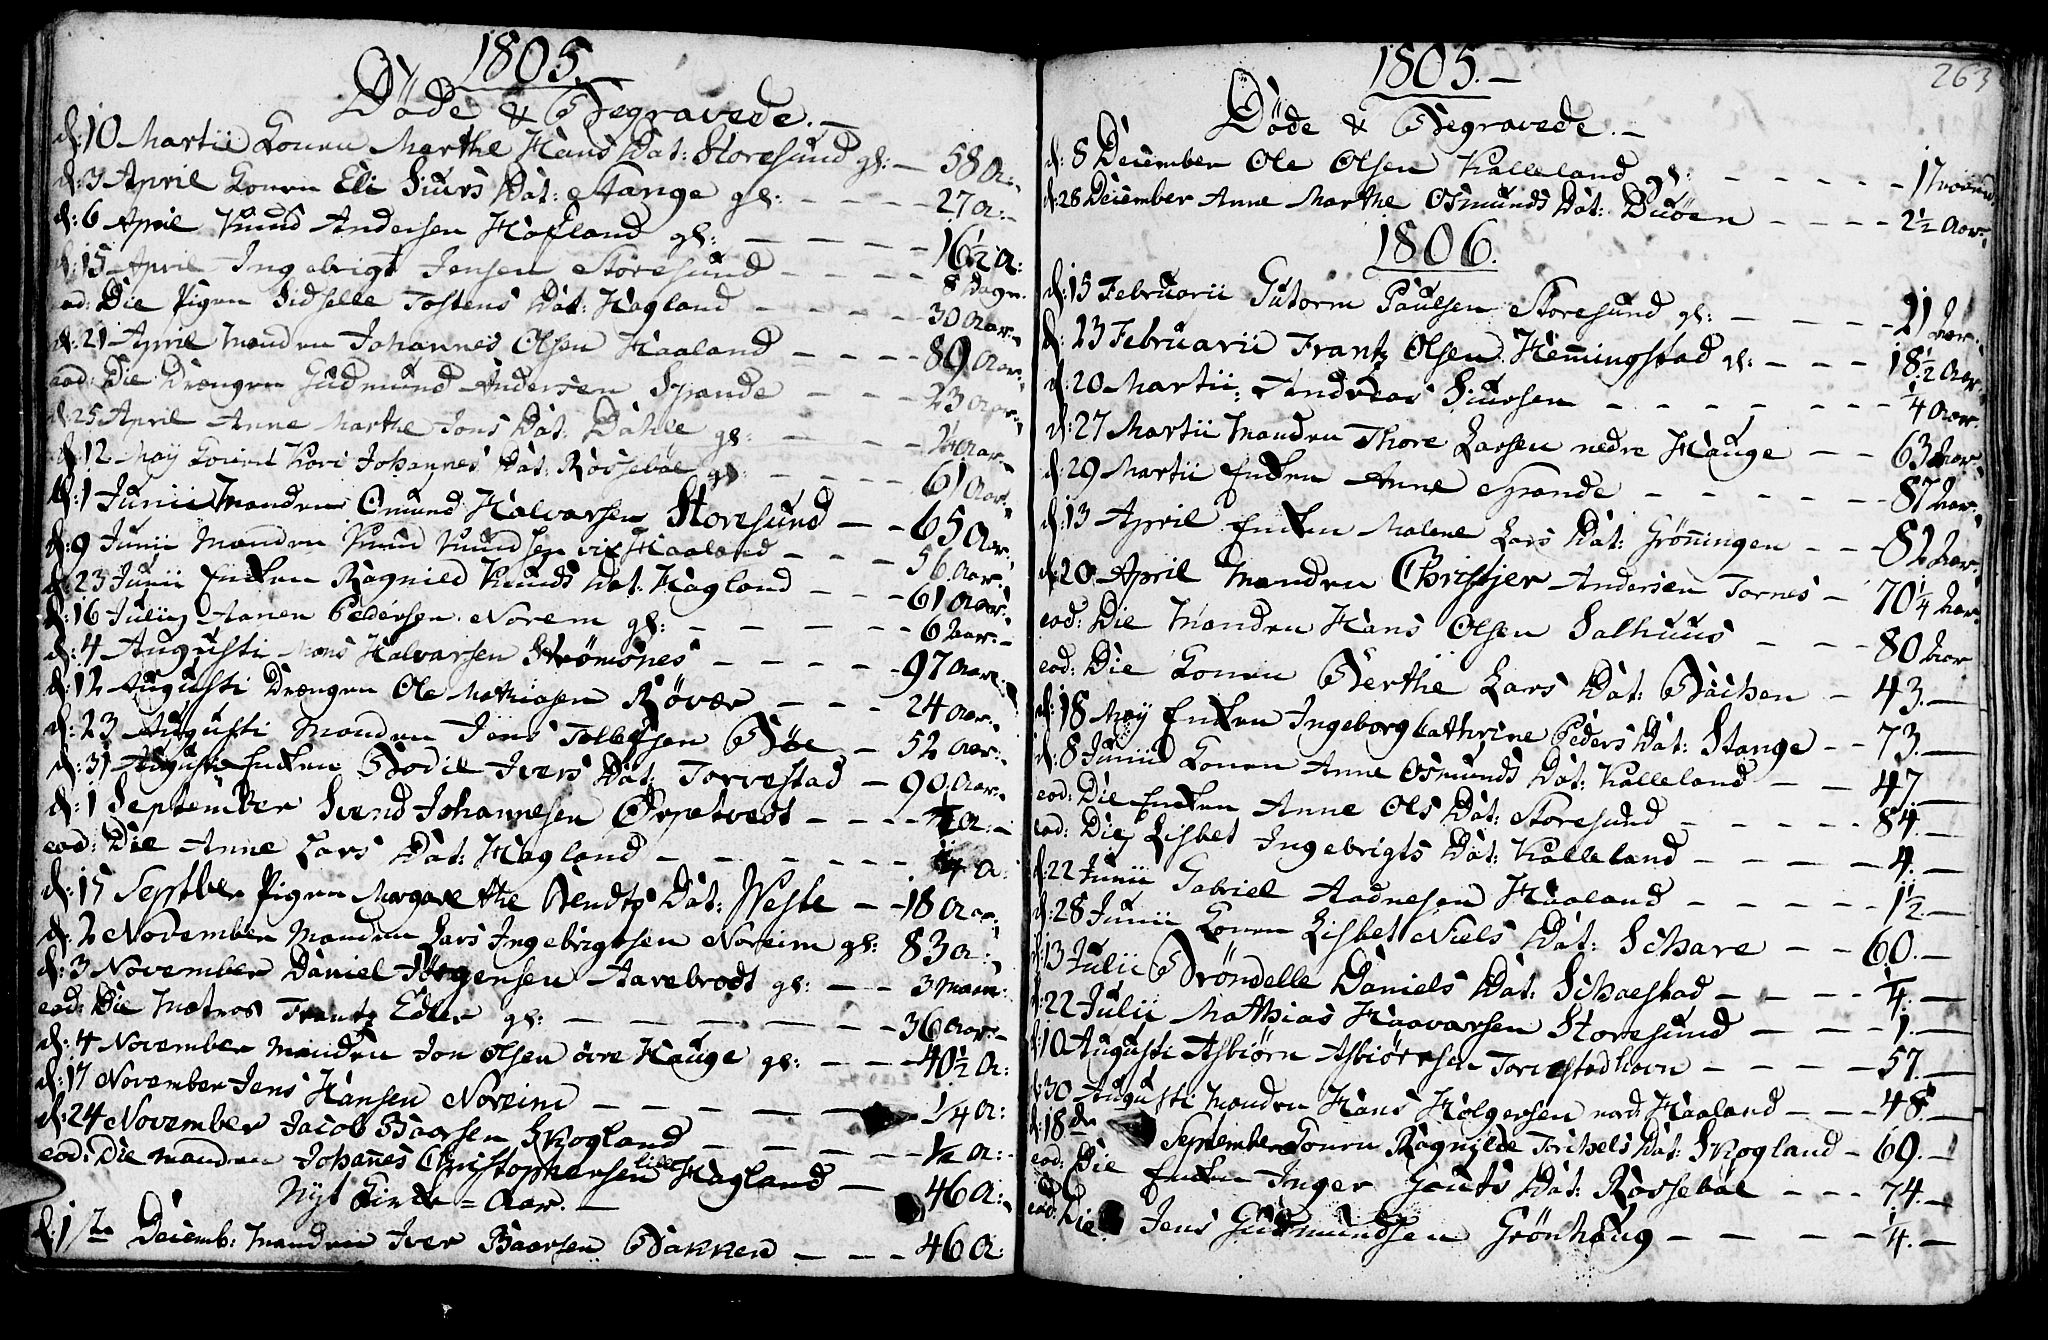 1805.
Döde & Begravede.
d: 10 Martii Konen Marthe Hans Dat: Storesund gl: 58 A:
d: 3 April Konen Eli Siurs Dat: Stange gl: 27 A:
d: 6 April Knud Andersen Hafland gl: 16½ A:
d: 15 April Ingebrigt Jensen Storesund 8 Dage
eod: Die Pigen Sidselle Tostens Dat: Hagland 30 Aar
d: 21 April Manden Johannes Olsen Haaland 89 Aar
eod: Die Drengen Gudmund Andersen Spande 23 Aar
d: 25 April Anne Marthe Jons Dat: Dahle gl: Aar
d: 12 Maÿ Konen Kari Johannes Dat: Rossebøe gl: 61 Aar
d: 1 Junii Manden Omund Halvarsen Storesund 65 Aar
d: 9 Junii Manden Knud Knudsen Haaland 56 Aar
d: 23 Junii Enken Ragnild Knuds Dat: Hagland 61 Aar
d: 16 Julii Aanen Pedersen Norem gl: 6 Aar
d: 4 Augusti Mons Halvarsen Strömönes 97 Aar
d: 12 Augusti Drengen Ole Mathiasen Rövær 24 Aar
d: 23 Augusti Manden Jens Tollefsen Böe 52 Aar
d: 31 Augusti Enken Bodil Ivers Dat: Torvestad 90 Aar
d: 1 September Svend Johannesen Örpetvedt A:
eod: Die Anne Lars Dat: Hagland ¼ A:
d: 15 Septbr Pigen Margarethe Bendts Dat: Weste 18 Aar
d: 2 November Manden Lars Ingebrigtsen Noreim gl: 83 A:
d: 3 November Daniel Jörgensen Aarebrodt gl: 3 Maan:
eod: Die Matros Frantz Edler gl: 36 Aar
d: 4 November Manden Jon Olsen övre Hauge gl: 40½ A:
d: 17 November Jens Hansen Noreim 1/4 A:
d: 24 November Jacob Baarsen Skogland ½ A:
eod: Die Manden Johannes Christophersen lille Hagland 46 A:
Nyt Kirke-Aar.
d: 1ste Decemb: Manden Iver Baarsen Bakken 46 A:
263
1805.
Döde & Begravede.
d: 8 December Ole Olsen Kalleland gl: 17
d: 26 December Anne Marthe Osmunds Dat: Duöen 2½ Aar
1806.
d: 15 Februarii Gutorm Paulsen Storesund gl: 21 Aar
d: 23 Februarii Frantz Olsen Hemmingstad gl: 18½ Aar
d: 20 Martii Andreas Siursen ¼ Aar
d: 27 Martii Manden Thore Larsen nedre Hauge 63 Aar
d: 29 Martii Enken Anne Spande 87 Aar
d: 13 April Enken Malene Lars Dat: Grönningen 82 Aar
d: 20 April Manden Christjer Andersen Tornes 70¼ Aar
eod: Die Manden Hans Olsen Salhuus 80 Aar
eod: Die Konen Berthe Lars Dat: Bachen 43.
d: 18 Maÿ Enken Ingeborg Cathrine Peders Dat: Stange 73.
d: 8 Junii Konen Anne Osmunds Dat: Kalleland 47.
eod: Die Enken Anne Ols Dat: Storesund 84.
eod: Die Lisbet Ingebrigts Dat: Kalleland 4.
d: 22 Junii Gabriel Aadnesen Haaland 1½.
d: 28 Junii Konen Lisbet Niels Dat: Schare 60.
d: 13 Julii Bröndelle Daniels Dat: Schaestad ¼.
d: 22 Julii Mathias Haavarsen Storesund 1.
d: 10 Augusti Asbiörn Asbiörnsen Torvestadhavn 57.
d: 30 Augusti Manden Hans Holgersen nord Haaland 48.
d: 18de September Konen Ragnilde Torchels Dat: Skogland 69.
eod: Die Enken Inger Gouts Dat: Rossebøe 74.
eod: Die Jens Gudmundsen Grönhaug ¼.